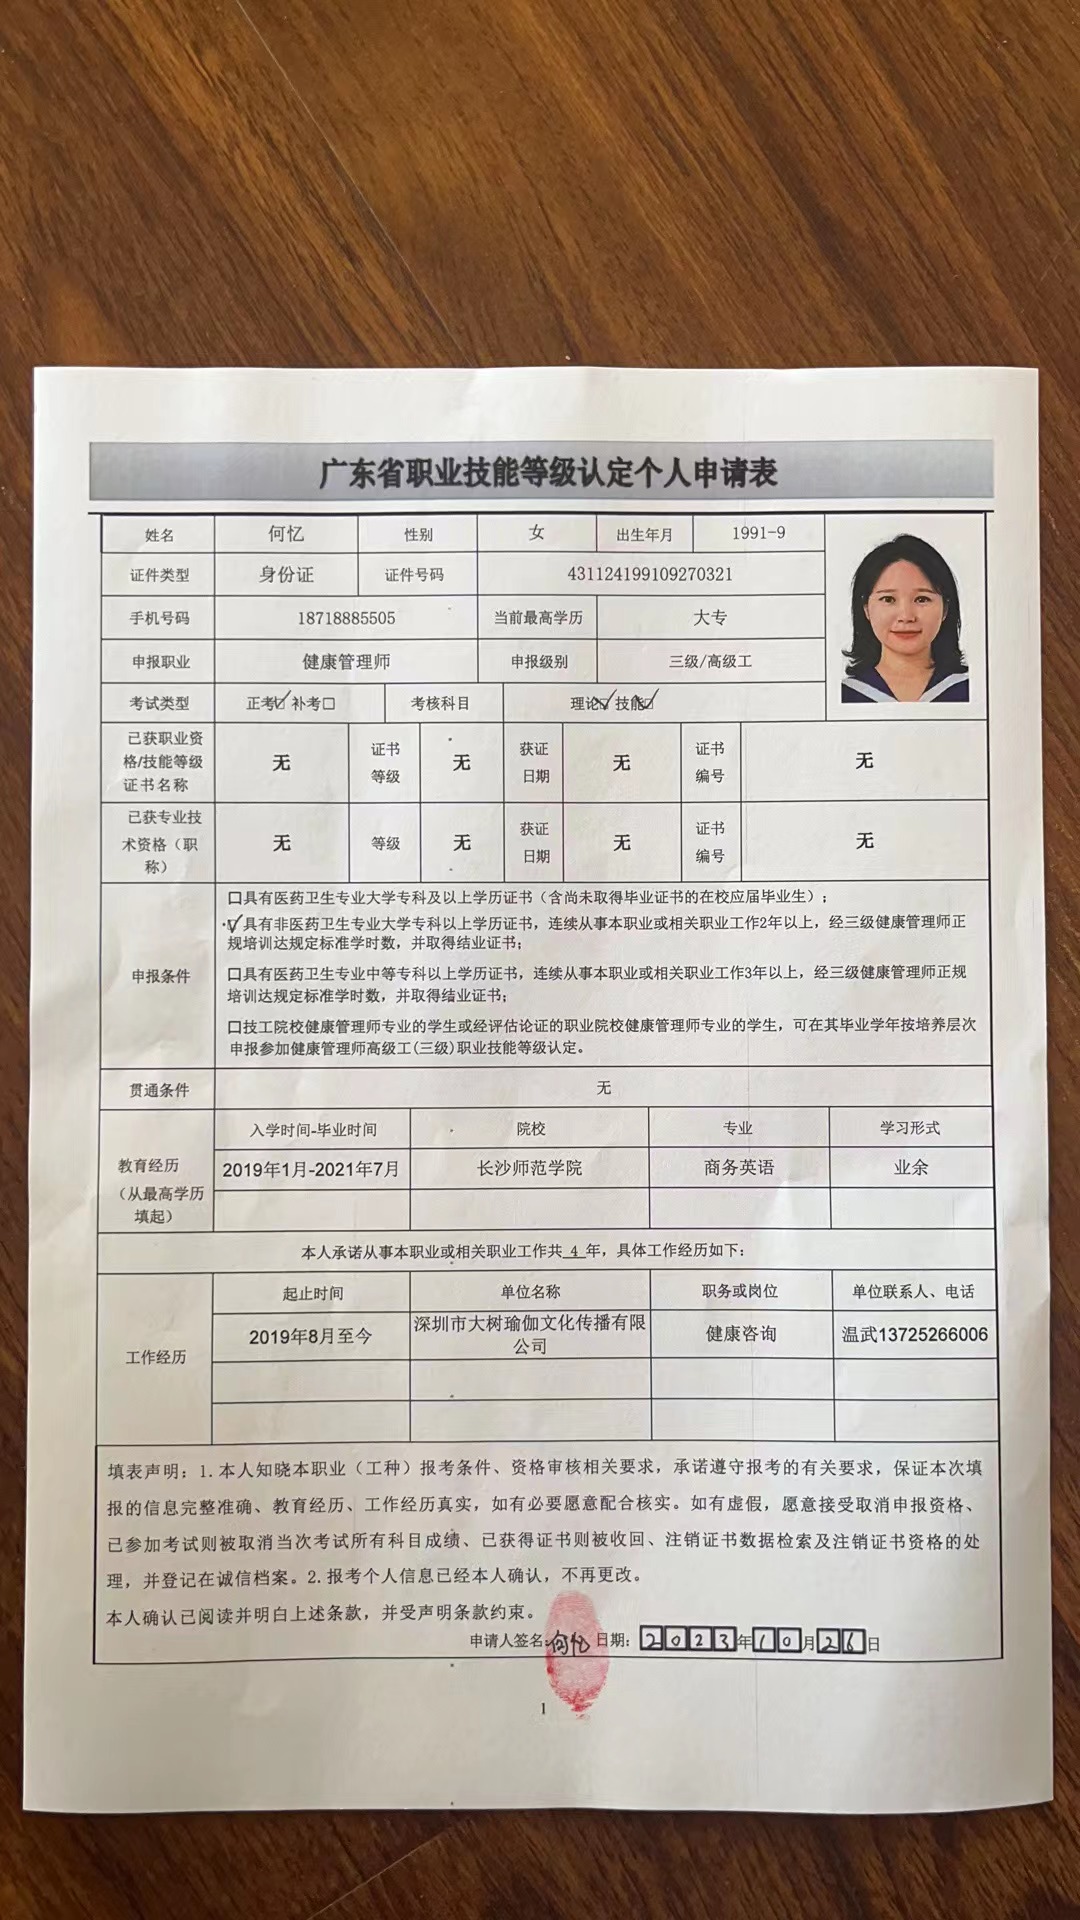 广东省职业技能等级认定个人申请表
姓名 何忆 性别 女 出生年月 1991-9
证件类型 身份证 证件号码 431124199109270321
手机号码 18718885505 当前最高学历 大专
申报职业 健康管理师 申报级别 三级/高级工
考试类型 正考☑ 补考☐ 考核科目 理论☑ 技能☑
已获职业资格/技能等级证书名称 无 证书等级 无 获证日期 无 证书编号 无
已获专业技术资格（职称） 无 等级 无 获证日期 无 证书编号 无
申报条件
☐具有医药卫生专业大学专科及以上学历证书（含尚未取得毕业证书的在校应届毕业生）；
☑具有非医药卫生专业大学专科以上学历证书，连续从事本职业或相关职业工作2年以上，经三级健康管理师正
规培训达规定标准学时数，并取得结业证书；
☐具有医药卫生专业中等专科以上学历证书，连续从事本职业或相关职业工作3年以上，经三级健康管理师正规
培训达规定标准学时数，并取得结业证书；
☐技工院校健康管理师专业的学生或经评估论证的职业院校健康管理师专业的学生，可在其毕业学年按培养层次
申报参加健康管理师高级工(三级)职业技能等级认定。
贯通条件 无
教育经历（从最高学历填起）
入学时间-毕业时间 院校 专业 学习形式
2019年1月-2021年7月 长沙师范学院 商务英语 业余
本人承诺从事本职业或相关职业工作共 4 年，具体工作经历如下：
工作经历
起止时间 单位名称 职务或岗位 单位联系人、电话
2019年8月至今 深圳市大树瑜伽文化传播有限公司 健康咨询 温武13725266006
填表声明：1.本人知晓本职业（工种）报考条件、资格审核相关要求，承诺遵守报考的有关要求，保证本次填
报的信息完整准确、教育经历、工作经历真实，如有必要愿意配合核实。如有虚假，愿意接受取消申报资格、
已参加考试则被取消当次考试所有科目成绩、已获得证书则被收回、注销证书数据检索及注销证书资格的处
理，并登记在诚信档案。2.报考个人信息已经本人确认，不再更改。
本人确认已阅读并明白上述条款，并受声明条款约束。
申请人签名：何忆 日期：2023年10月26日
1